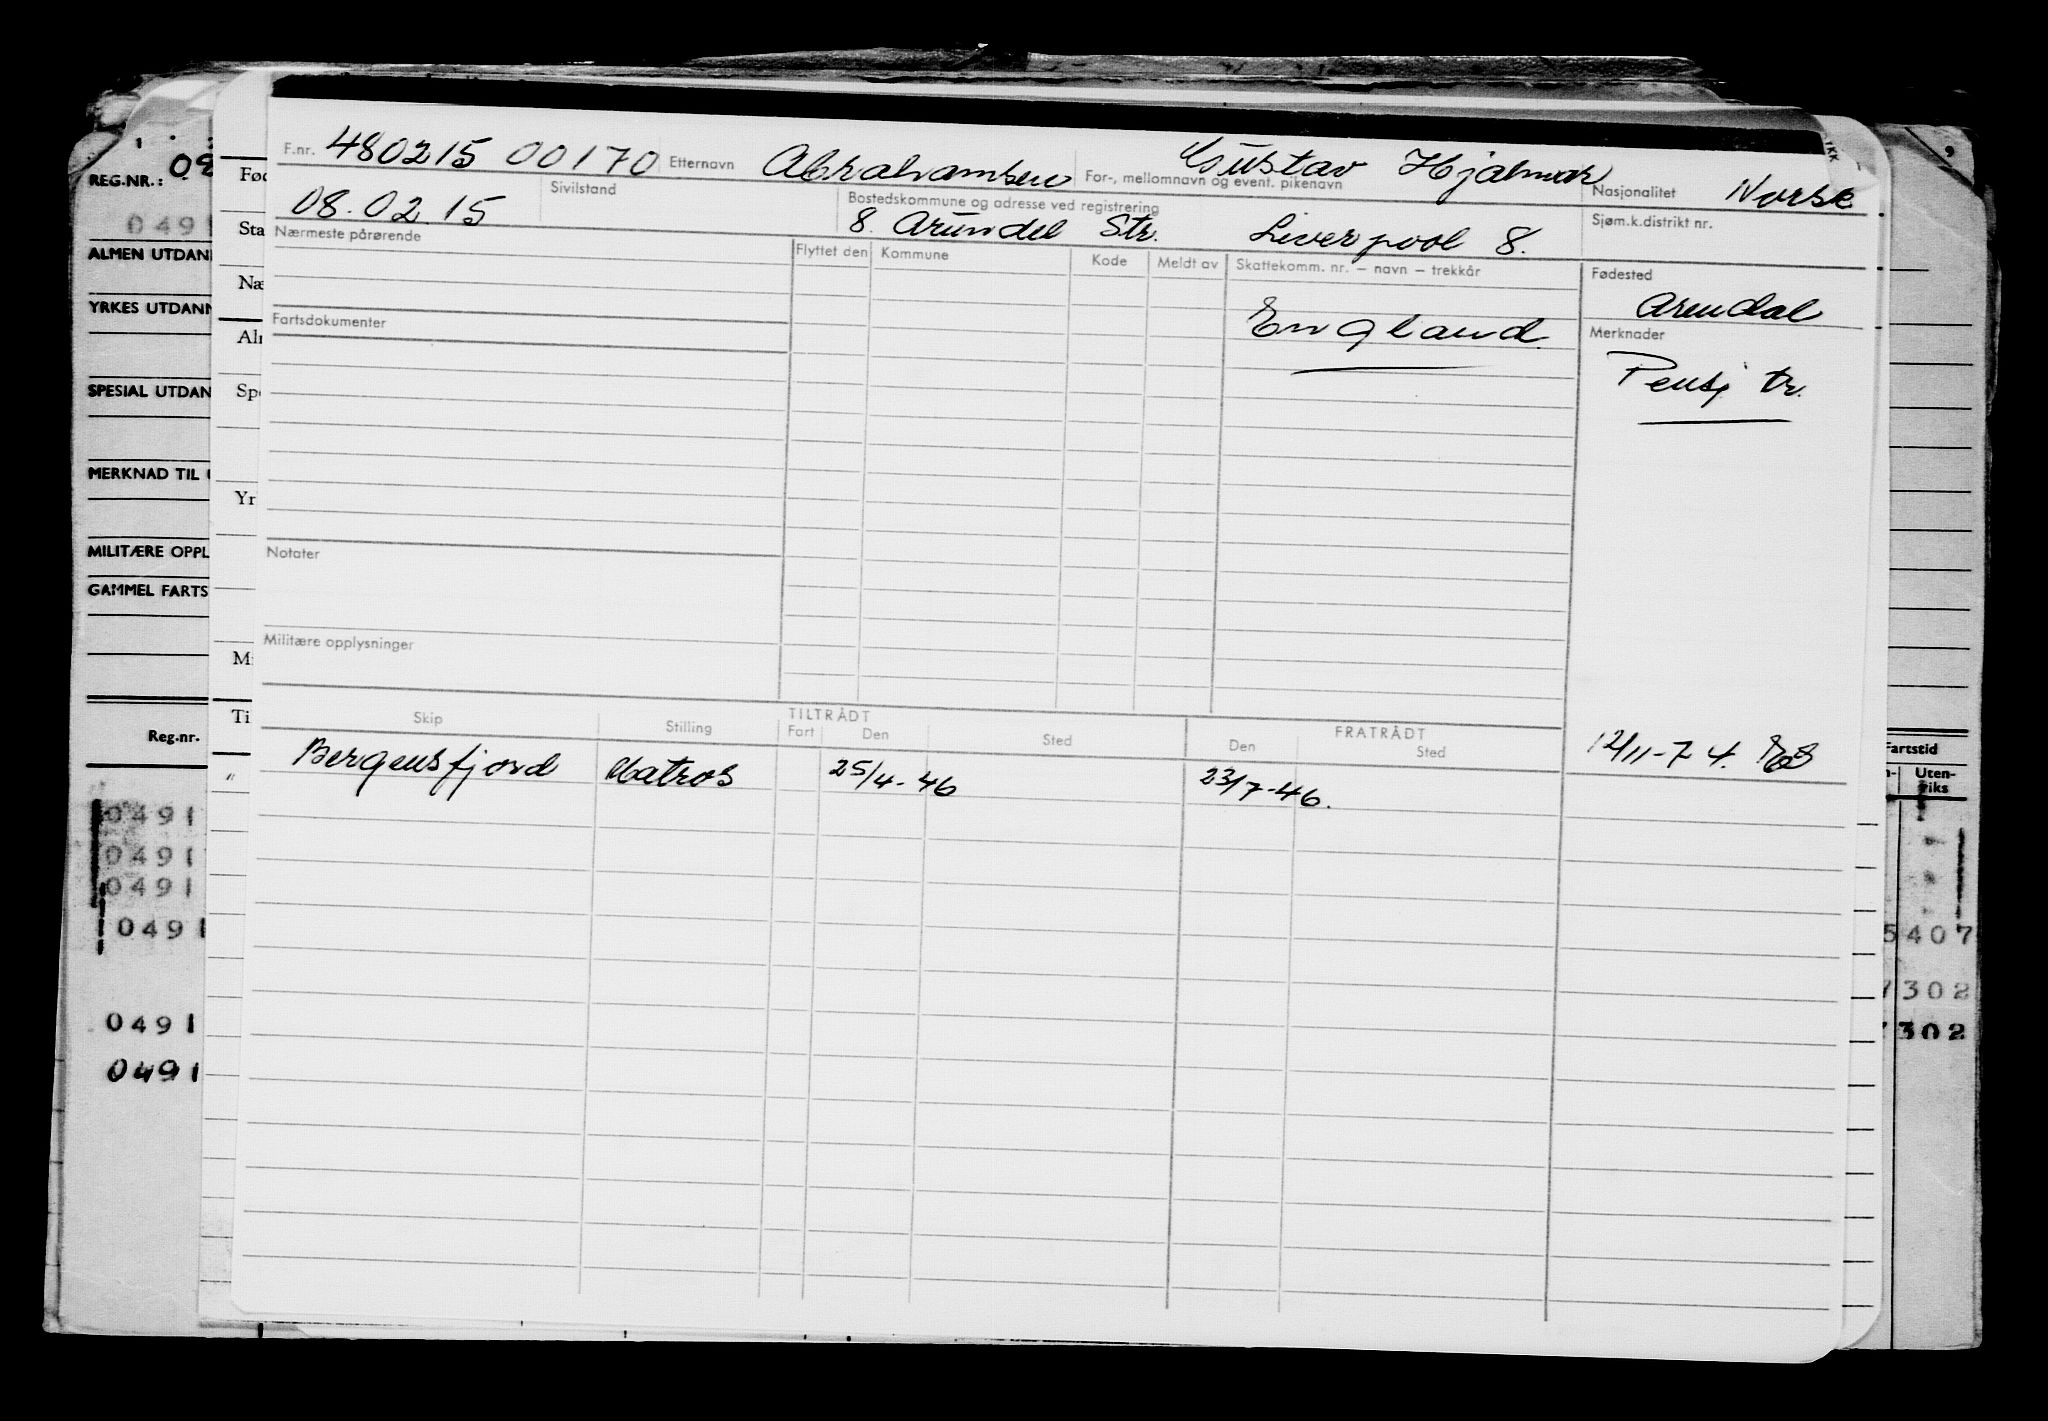 F.nr. 480215 00170 Etternavn Abrahamsen For-, mellomnavn og event. pikenavn Gustav Hjalmar Nasjonalitet Norsk
08.02.15 Sivilstand Bostedskommune og adresse ved registrering 8. Arundel Str. Liverpool 8. Sjøm.k.distrikt nr.
Nærmeste pårørende Flyttet den Kommune Kode Meldt av Skattekomm. nr. – navn – trekkår Fødested
Arendal
Fartsdokumenter England Merknader
Pensj tr.
Notater
Militære opplysninger
TILTRÅDT FRATRÅDT
Skip Stilling Fart Den Sted Den Sted
12/11-74.
Bergensfjord Matros 25/4-46 23/7-46.
REG.NR.: 08
0491
ALMEN UTDAN
YRKES UTDANN
SPESIAL UTDAN
MERKNAD TIL
MILITÆRE OPPL
GAMMEL FARTS
Reg.nr.
0491
0491
0491
0491
0491
0491
Fød
Sta
Næ
Yr
Ti
"
Fartstid
Uten-
riks
5407
7302
7302